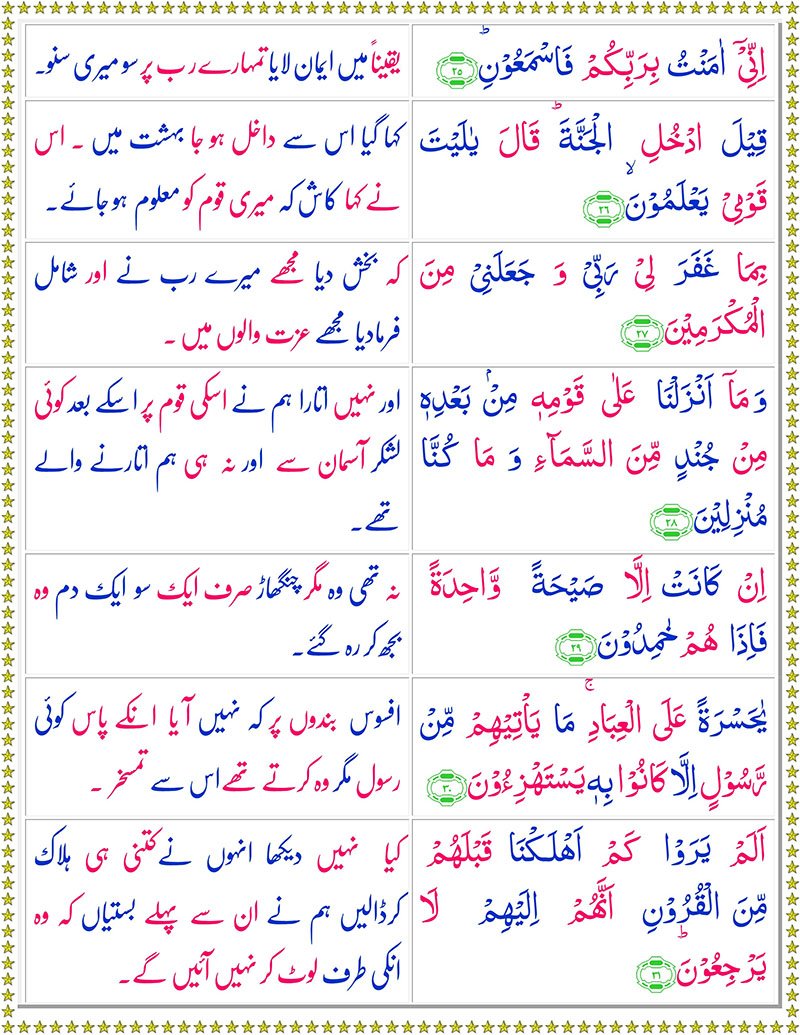 اِنِّیْۤ اٰمَنْتُ بِرَبِّكُمْ فَاسْمَعُوْنِؕ ۲۵
یقیناً میں ایمان لایا تمہارے رب پر سو میری سنو۔
قِیْلَ ادْخُلِ الْجَنَّةَؕ قَالَ یٰلَیْتَ
قَوْمِیْ یَعْلَمُوْنَۙ ۲۶
کہا گیا اس سے داخل ہو جا بہشت میں ۔ اس
نے کہا کاش کہ میری قوم کو معلوم ہو جائے۔
بِمَا غَفَرَ لِیْ رَبِّیْ وَ جَعَلَنِیْ مِنَ
الْمُكْرَمِیْنَ ۲۷
کہ بخش دیا مجھے میرے رب نے اور شامل
فرمادیا مجھے عزت والوں میں ۔
وَ مَاۤ اَنْزَلْنَا عَلٰى قَوْمِهٖ مِنْۢ بَعْدِهٖ
مِنْ جُنْدٍ مِّنَ السَّمَآءِ وَ مَا كُنَّا
مُنْزِلِیْنَ ۲۸
اور نہیں اتارا ہم نے اسکی قوم پر اسکے بعد کوئی
لشکر آسمان سے اور نہ ہی ہم اتارنے والے
تھے۔
اِنْ كَانَتْ اِلَّا صَیْحَةً وَّاحِدَةً
فَاِذَا هُمْ خٰمِدُوْنَ ۲۹
نہ تھی وہ مگر چنگھاڑ صرف ایک سو ایک دم وہ
بجھ کر رہ گئے۔
یٰحَسْرَةً عَلَى الْعِبَادِۚ مَا یَاْتِیْهِمْ مِّنْ
رَّسُوْلٍ اِلَّا كَانُوْا بِهٖ یَسْتَهْزِءُوْنَ ۳۰
افسوس بندوں پر کہ نہیں آیا انکے پاس کوئی
رسول مگر وہ کرتے تھے اس سے تمسخر ۔
اَلَمْ یَرَوْا كَمْ اَهْلَكْنَا قَبْلَهُمْ
مِّنَ الْقُرُوْنِ اَنَّهُمْ اِلَیْهِمْ لَا
یَرْجِعُوْنَؕ ۳۱
کیا نہیں دیکھا انہوں نے کتنی ہی ہلاک
کر ڈالیں ہم نے ان سے پہلے بستیاں کہ وہ
انکی طرف لوٹ کر نہیں آئیں گے۔